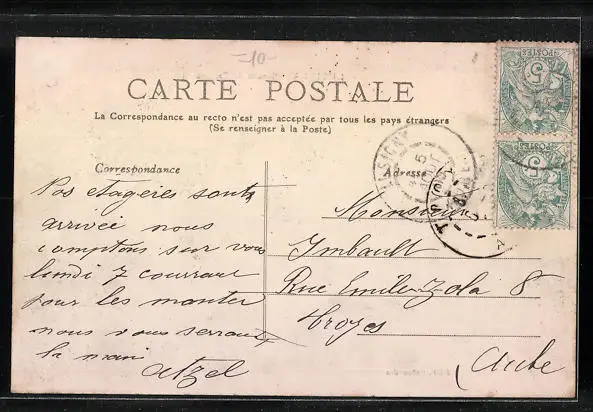 -10-
CARTE POSTALE
La Correspondance au recto n'est pas acceptée par tous les pays étrangers
(Se renseigner à la Poste)
Correspondance
Adresse
Vos etageres sont
arrivée nous
comptons sur vous
lundi 7 courrant
pour les monter
nous vous serrons
la main
Atzel
Monsieur
Imbault
Rue Emile-Zola 8
Troyes
Aube
POSTES
5
POSTES
5